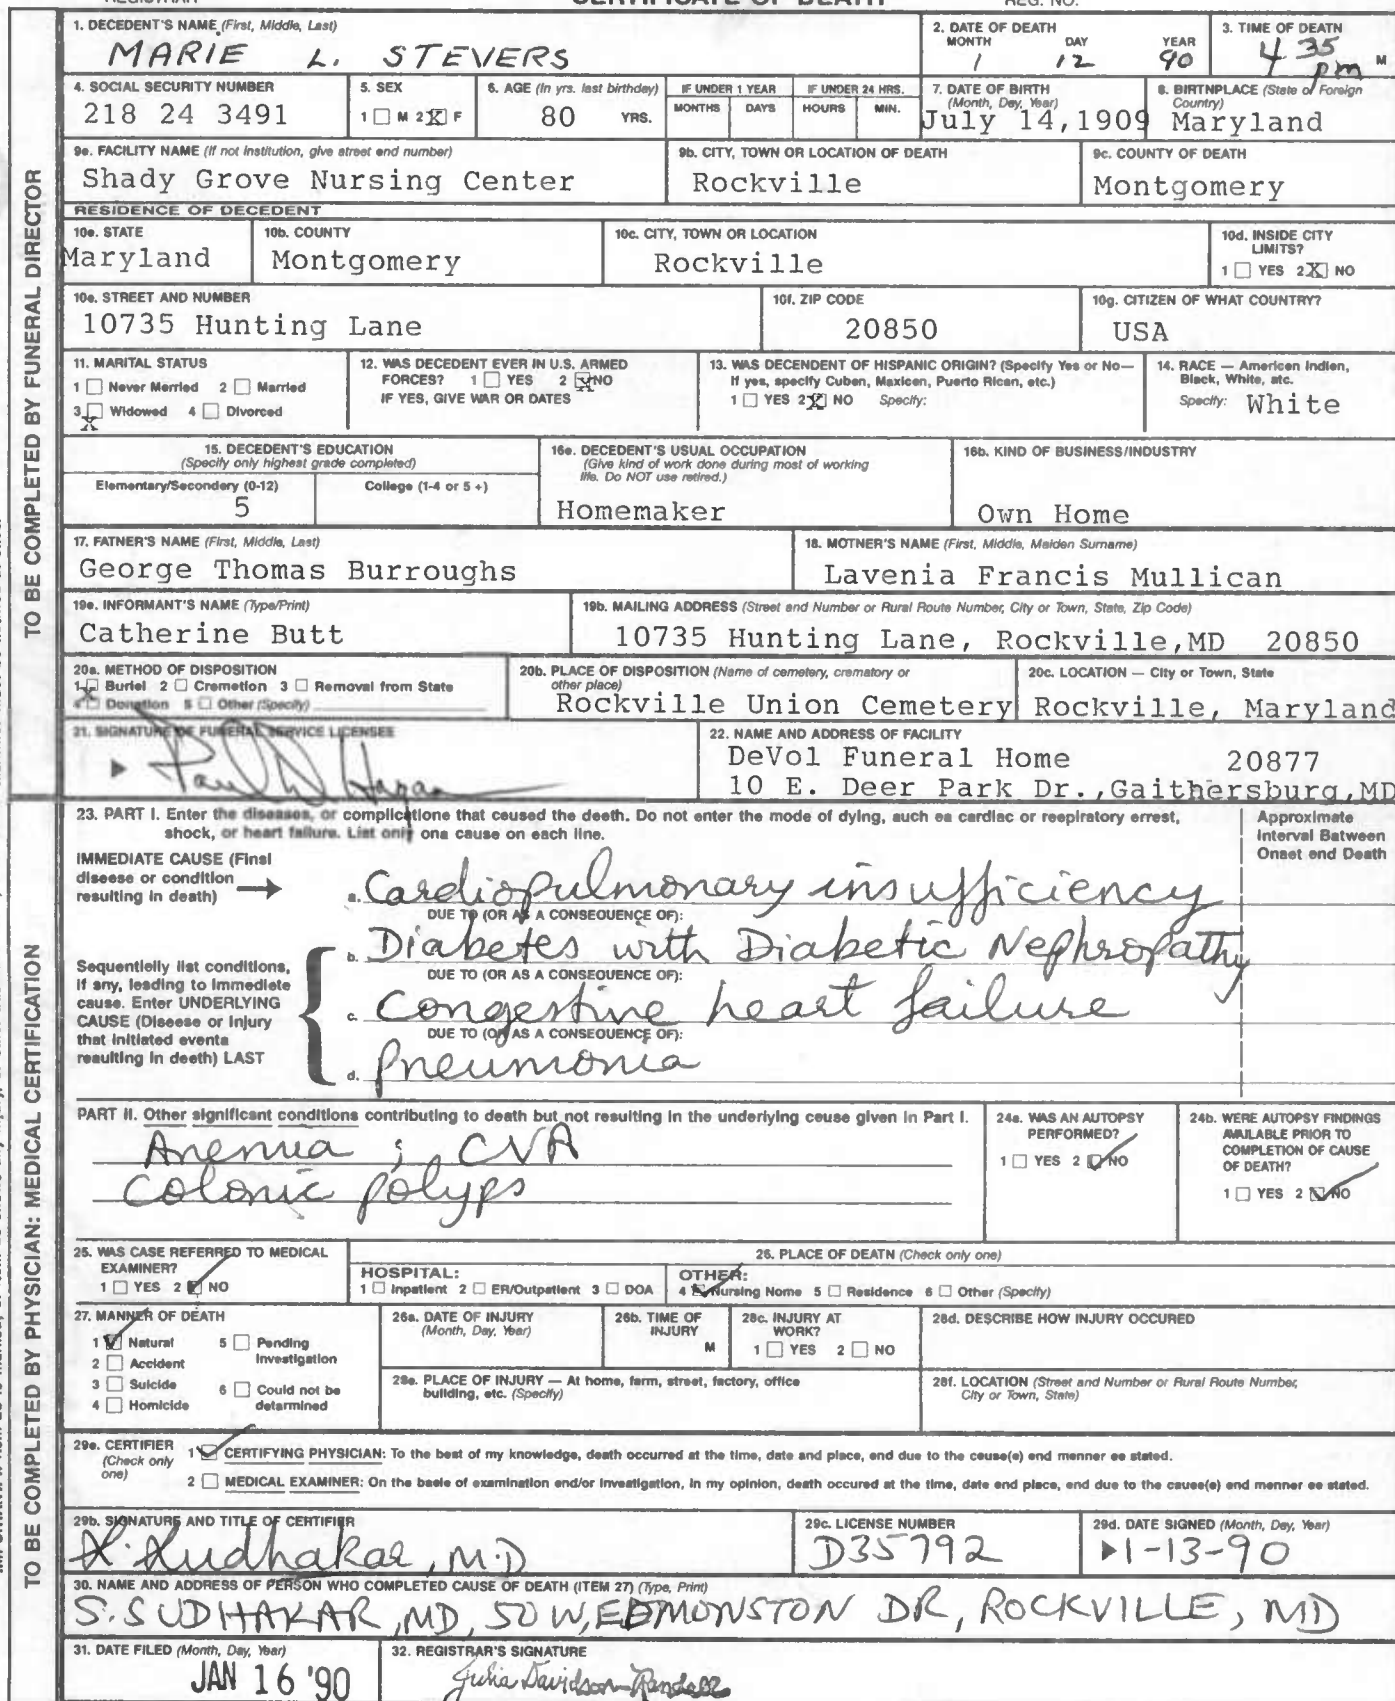 CERTIFICATE OF DEATH
REGISTRAR REG. NO.
TO BE COMPLETED BY FUNERAL DIRECTOR
1. DECEDENT'S NAME (First, Middle, Last)
MARIE L. STEVERS
2. DATE OF DEATH
MONTH DAY YEAR
1 12 90
3. TIME OF DEATH
4 35 pm M
4. SOCIAL SECURITY NUMBER
218 24 3491
5. SEX
1 M 2 X F
6. AGE (In yrs. last birthday)
80 YRS.
IF UNDER 1 YEAR
MONTHS DAYS
IF UNDER 24 HRS.
HOURS MIN.
7. DATE OF BIRTH
(Month, Day, Year)
July 14,1909
8. BIRTHPLACE (State or Foreign
Country)
Maryland
9a. FACILITY NAME (If not institution, give street and number)
Shady Grove Nursing Center
9b. CITY, TOWN OR LOCATION OF DEATH
Rockville
9c. COUNTY OF DEATH
Montgomery
RESIDENCE OF DECEDENT
10a. STATE
Maryland
10b. COUNTY
Montgomery
10c. CITY, TOWN OR LOCATION
Rockville
10d. INSIDE CITY
LIMITS?
1 YES 2 X NO
10e. STREET AND NUMBER
10735 Hunting Lane
10f. ZIP CODE
20850
10g. CITIZEN OF WHAT COUNTRY?
USA
11. MARITAL STATUS
1 Never Married 2 Married
3 X Widowed 4 Divorced
12. WAS DECEDENT EVER IN U.S. ARMED
FORCES? 1 YES 2 X NO
IF YES, GIVE WAR OR DATES
13. WAS DECENDENT OF HISPANIC ORIGIN? (Specify Yes or No—
If yes, specify Cuban, Maxican, Puerto Rican, etc.)
1 YES 2 X NO Specify:
14. RACE — American Indian,
Black, White, atc.
Specify: White
15. DECEDENT'S EDUCATION
(Specify only highest grade completed)
Elementary/Secondary (0-12) College (1-4 or 5 +)
5
16a. DECEDENT'S USUAL OCCUPATION
(Give kind of work done during most of working
life. Do NOT use retired.)
Homemaker
16b. KIND OF BUSINESS/INDUSTRY
Own Home
17. FATHER'S NAME (First, Middle, Last)
George Thomas Burroughs
18. MOTHER'S NAME (First, Middle, Maiden Surname)
Lavenia Francis Mullican
19a. INFORMANT'S NAME (Type/Print)
Catherine Butt
19b. MAILING ADDRESS (Street and Number or Rural Route Number, City or Town, State, Zip Code)
10735 Hunting Lane, Rockville,MD 20850
20a. METHOD OF DISPOSITION
1 X Burial 2 Cremation 3 Removal from State
4 Donation 5 Other (Specify)
20b. PLACE OF DISPOSITION (Name of cemetery, crematory or
other place)
Rockville Union Cemetery
20c. LOCATION — City or Town, State
Rockville, Maryland
21. SIGNATURE OF FUNERAL SERVICE LICENSEE
22. NAME AND ADDRESS OF FACILITY
DeVol Funeral Home 20877
10 E. Deer Park Dr.,Gaithersburg,MD
TO BE COMPLETED BY PHYSICIAN: MEDICAL CERTIFICATION
23. PART I. Enter the diseases, or complications that caused the death. Do not enter the mode of dying, such as cardiac or respiratory arrest,
shock, or heart failure. List only one cause on each line.
Approximate
Interval Between
Onset and Death
IMMEDIATE CAUSE (Final
disease or condition
resulting in death)
a. Cardiopulmonary insufficiency
DUE TO (OR AS A CONSEQUENCE OF):
b. Diabetes with Diabetic Nephropathy
DUE TO (OR AS A CONSEQUENCE OF):
c. Congestive heart failure
DUE TO (OR AS A CONSEQUENCE OF):
d. Pneumonia
Sequentially list conditions,
if any, leading to immediate
cause. Enter UNDERLYING
CAUSE (Disease or injury
that initiated events
resulting in death) LAST
PART II. Other significant conditions contributing to death but not resulting in the underlying cause given in Part I.
Anemia ; CVA
Colonic polyps
24a. WAS AN AUTOPSY
PERFORMED?
1 YES 2 ✓ NO
24b. WERE AUTOPSY FINDINGS
AVAILABLE PRIOR TO
COMPLETION OF CAUSE
OF DEATH?
1 YES 2 ✓ NO
25. WAS CASE REFERRED TO MEDICAL
EXAMINER?
1 YES 2 ✓ NO
26. PLACE OF DEATH (Check only one)
HOSPITAL:
1 Inpatient 2 ER/Outpatient 3 DOA
OTHER:
4 ✓ Nursing Home 5 Residence 6 Other (Specify)
27. MANNER OF DEATH
1 ✓ Natural 5 Pending
Investigation
2 Accident
3 Suicide 6 Could not be
determined
4 Homicide
28a. DATE OF INJURY
(Month, Day, Year)
28b. TIME OF
INJURY
M
28c. INJURY AT
WORK?
1 YES 2 NO
28d. DESCRIBE HOW INJURY OCCURED
28e. PLACE OF INJURY — At home, farm, street, factory, office
building, etc. (Specify)
28f. LOCATION (Street and Number or Rural Route Number,
City or Town, State)
29a. CERTIFIER
(Check only
one)
1 ✓ CERTIFYING PHYSICIAN: To the best of my knowledge, death occurred at the time, date and place, and due to the cause(s) and manner as stated.
2 MEDICAL EXAMINER: On the basis of examination and/or investigation, in my opinion, death occured at the time, date and place, and due to the cause(s) and manner as stated.
29b. SIGNATURE AND TITLE OF CERTIFIER
S. Sudhakar, M.D
29c. LICENSE NUMBER
D35792
29d. DATE SIGNED (Month, Day, Year)
1-13-90
30. NAME AND ADDRESS OF PERSON WHO COMPLETED CAUSE OF DEATH (ITEM 27) (Type, Print)
S. SUDHAKAR, MD, 50 W, EDMONSTON DR, ROCKVILLE, MD
31. DATE FILED (Month, Day, Year)
JAN 16 '90
32. REGISTRAR'S SIGNATURE
Julia Davidson-Randall